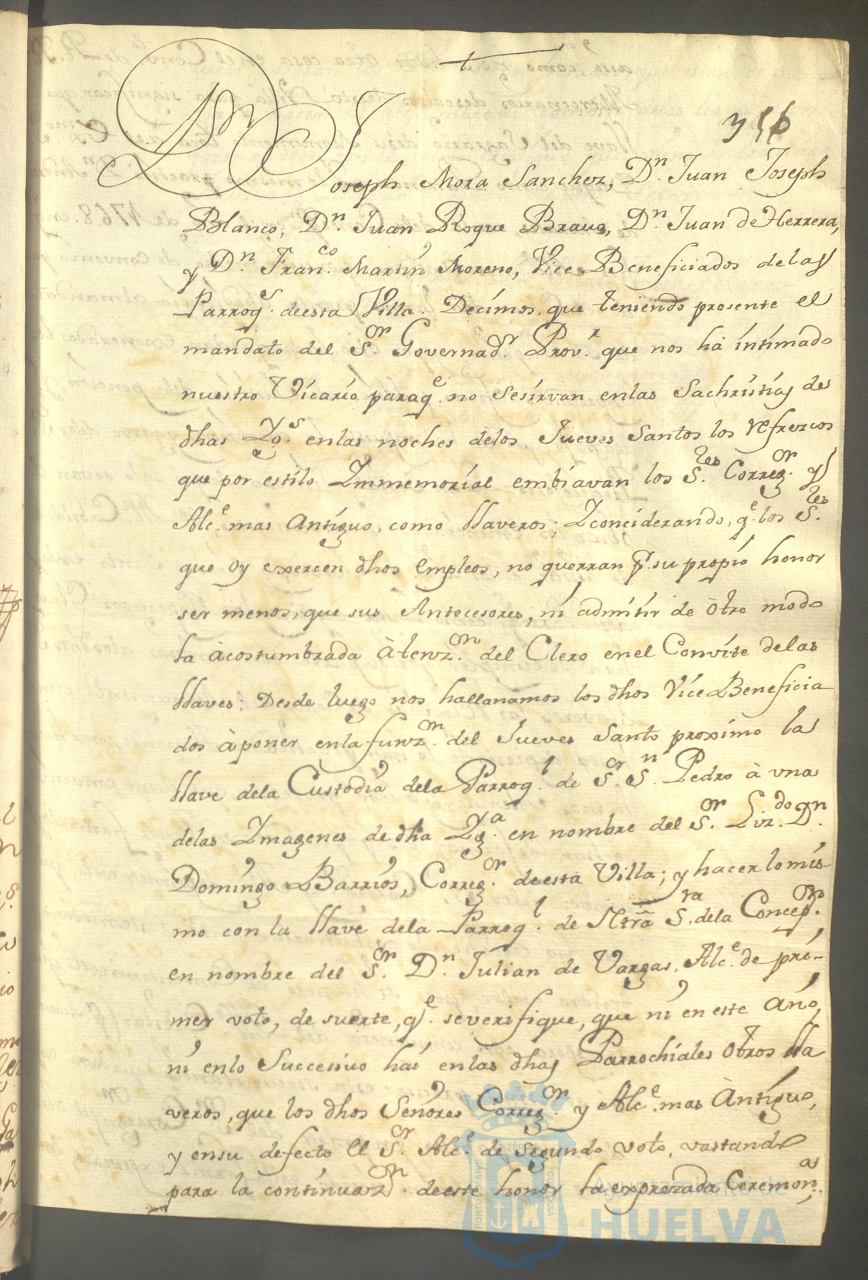 356
Joseph Mora Sanchez, Dn. Juan Joseph
Blanco, Dn. Juan Roque Bravo, Dn. Juan de Herrera,
y Dn. Franco. Martin Moreno, Vice-Beneficiados de las
Parroqs. de esta Villa. Decimos que teniendo presente el
mandato del Sr. Governadr. Provr. que nos ha intimado
nuestro Vicario paraqe. no se sirvan en las Sachristias de
dhas Ygs. en las noches delos Jueves Santos los refrezcos
que por estilo Ymmemorial embiavan los Sres. Corregor. y
Alce. mas Antiguo, como llaveros; Y conciderando, qe. los Sres.
que oy exercen dhos empleos, no querran pr. su propio honor
ser menos, que sus Antecesores, ni admitir de òtro modo
la àcostumbrada àtenzon. del Clero en el Convite de las
llaves; Desde luego nos hallanamos los dhos Vice Beneficia
dos à poner en la funzon. del Jueves Santo proximo la
llave dela Custodia dela Parroql. de Sor. Sn. Pedro à una
delas Ymagenes de dha Yga. en nombre del Sor. Lizdo. Dn.
Domingo Barrios, Corregor. de esta Villa; y hacer lo mis-
mo con la llave dela Parroql. de Ntra Sra. dela Concepon.
en nombre del Sor. Dn. Julian de Vargas, Alce. de pri-
mer voto, de suerte, qe. se verifique, que ni en este Año,
ni en lo Succesivo hai en las dhas Parrochiales otros lla
veros, que los dhos Señores Corregor. y Alce. mas Antiguo,
y en su defecto el Sor. Alce. de segundo voto, vastando
para la continuazon. de este honor la exprezada Ceremona.
Ayuntamiento de
HUELVA